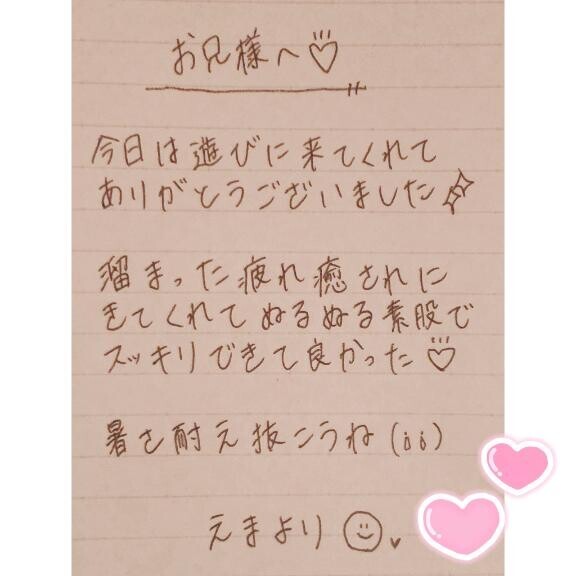 お兄様へ♡
今日は遊びに来てくれて
ありがとうございました
溜まった疲れ癒されに
きてくれてぬるぬる素股で
スッキリできて良かった♡
暑さ耐え抜こうね(;;)
えまより